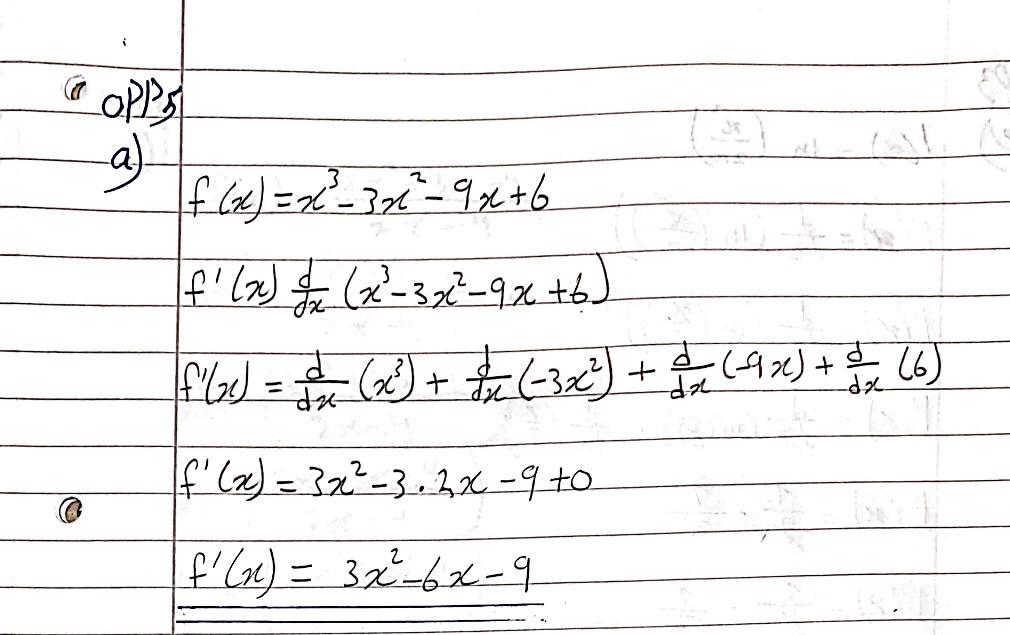 OPP5
a)
f(x) = x³ - 3x² - 9x + 6
f'(x) d/dx (x³ - 3x² - 9x + 6)
f'(x) = d/dx (x³) + d/dx (-3x²) + d/dx (-9x) + d/dx (6)
f'(x) = 3x² - 3 · 2x - 9 + 0
f'(x) = 3x² - 6x - 9